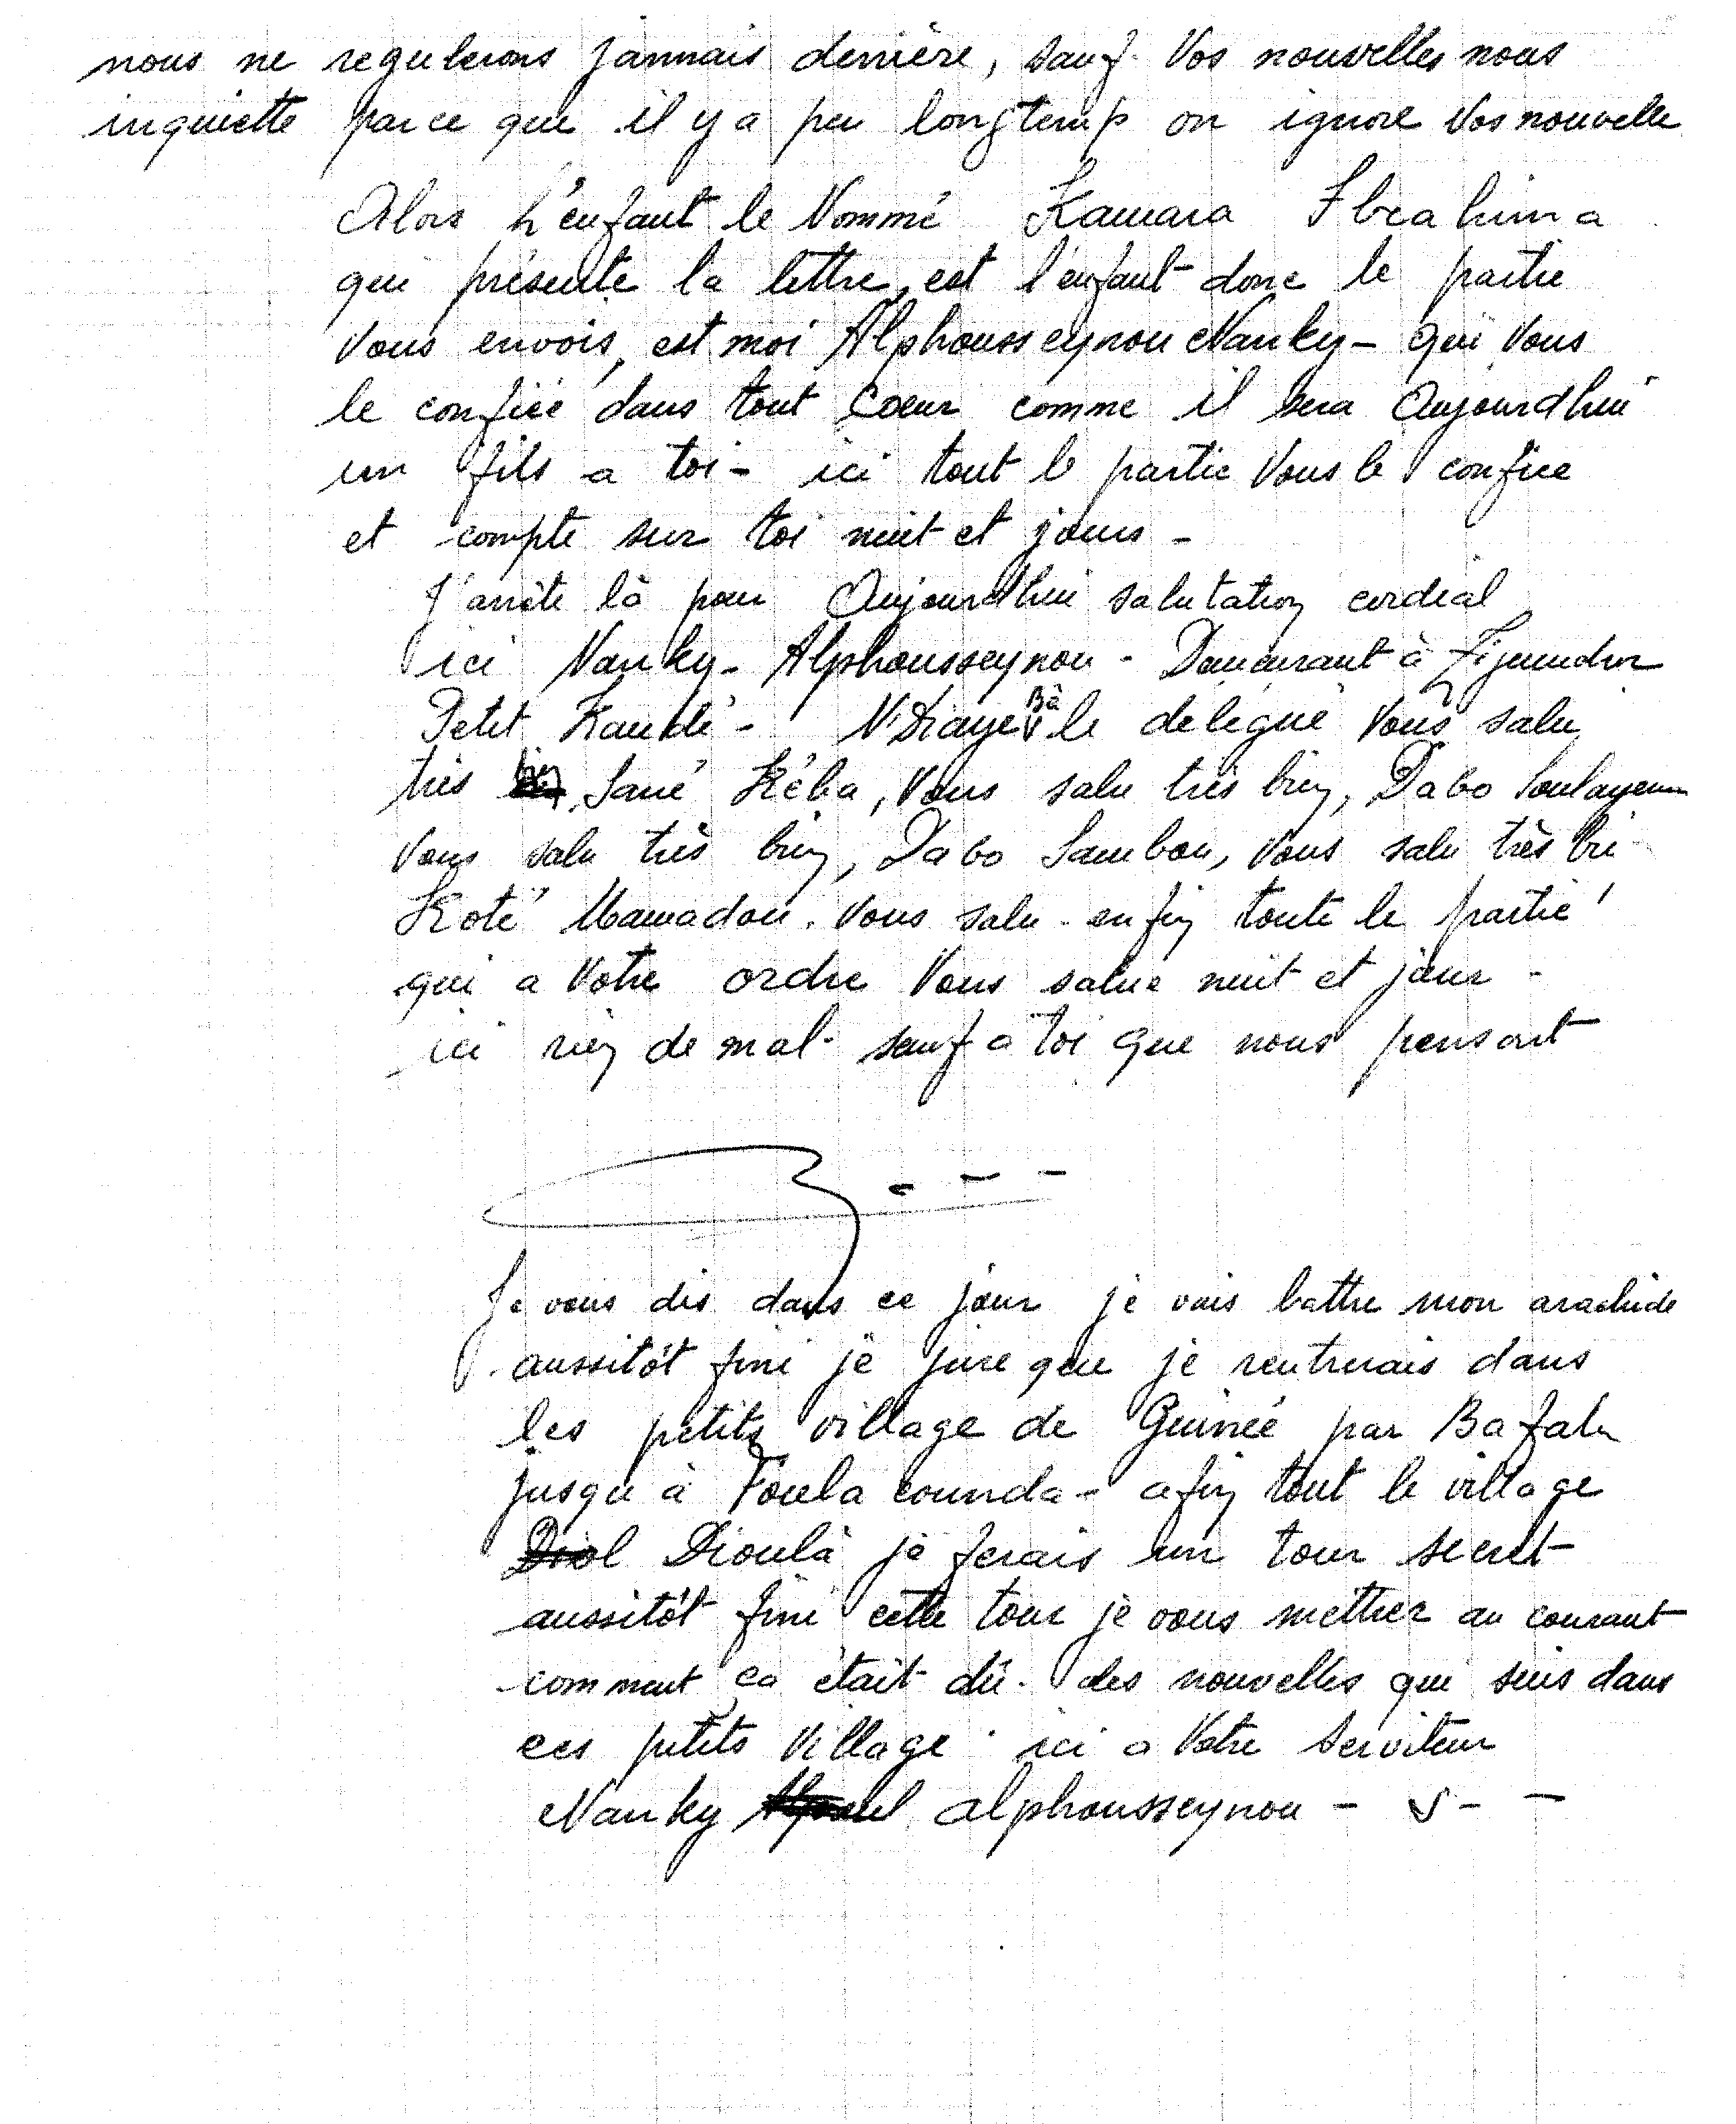 nous ne regulerons jammais derrière, sauf. Vos nouvelles nous
inquiette parce que il y a peu longtemp on ignore Vos nouvelle
Alors L'enfant le Nommé Kamara Ibrahima
qui présente la lettre, est l'enfant donc le partie
Vous envois, est moi Alphousseynou Nanky - qui Vous
le confiée dans tout Coeur comme il sera Aujourd'hui
un fils a toi - ici tout le partie Vous le confiee
et compte sur toi nuit et jours -
J'arrête là pour Aujourd'hui salutation cordial
ici Nanky - Alphousseynou - Demeurant à Ziguinchor
Petit Kandé - N'Diaye Bà le delegué Vous salu
très bien, Sané Kéba, Vous salu très bien, Dabo Soulayemn
Vous salu très bien, Dabo Sambou, Vous salu très bi
Koté Mamadou. Vous salu - enfin toute le partie
qui a Votre ordre Vous salue nuit et jour -
ici rien de mal - sauf a toi que nous pensont
Je vous dis dans ce jour je vais battre mon arachide
aussitôt fini je jure que je rentrerais dans
les petits village de Guinée par Bafata
jusqu'à Foula counda - afin tout le village
Diol Dioula je ferais un tour secret
aussitôt fini cette tour je vous mettrer au courant
comment ça était dû. des nouvelles qui suis dans
ces petits Village. ici a Votre Serviteur
Nanky alphousseynou -